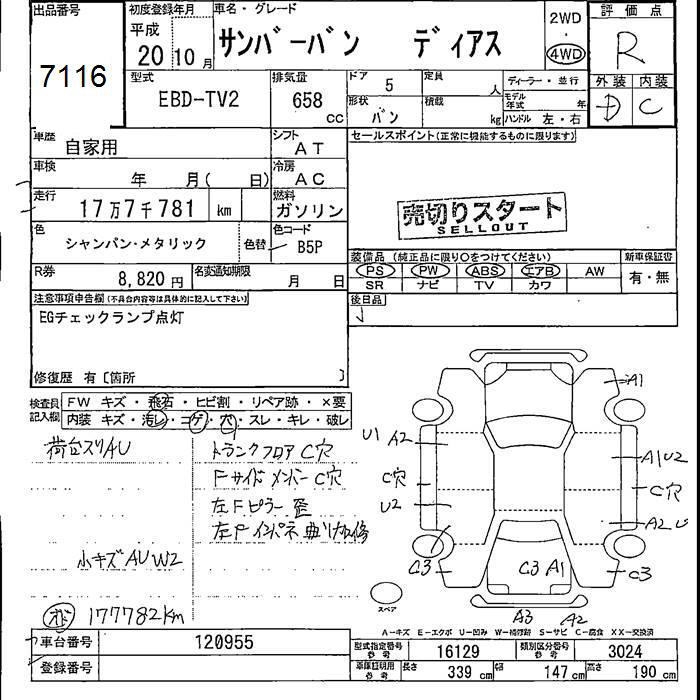 出品番号 7116
初度登録年月 平成 20 10月
車名・グレード サンバーバン ディアス
2WD ・ 4WD
評価点 R
型式 EBD-TV2
排気量 658 cc
ドア 5
定員 人
形状 バン
積載 kg
ディーラー・並行
モデル年式 年
ハンドル 左・右
外装 D
内装 C
車歴 自家用
シフト AT
車検 年 月( 日)
冷房 AC
走行 17万7千781 km
燃料 ガソリン
色 シャンパン・メタリック
色替
色コード B5P
R券 8,820円
名変通知期限 月 日
セールスポイント(正常に機能するものに限ります)
売切りスタート
SELLOUT
装備品 (純正品に限り○をつけてください)
新車保証書
PS PW ABS エアB AW
有・無
SR ナビ TV カワ
後日品
注意事項申告欄(不具合内容等は具体的に記入して下さい)
EGチェックランプ点灯
修復歴 有[箇所 ]
検査員記入欄
FW キズ ・ 飛石 ・ ヒビ割 ・ リペア跡 ・ ×要
内装 キズ・汚レ・コゲ・穴・スレ・キレ・破レ
荷台スリAU
トランクフロアC穴
FサイドメンバーC穴
左Fピラー歪
左Fインパネ曲り加修
小キズAUW2
177782km
A1
U1 A2
A1U2
C穴
C穴
U2
A2
C3
C3 A1
C3
スペア
A3 A2
A-キズ E-エクボ U-凹み W-補修跡 S-サビ C-腐食 XX-交換済
車台番号 120955
型式指定番号 参考 16129
類別区分番号 参考 3024
登録番号
車庫証明用 参考 長さ 339 cm 幅 147 cm 高さ 190 cm